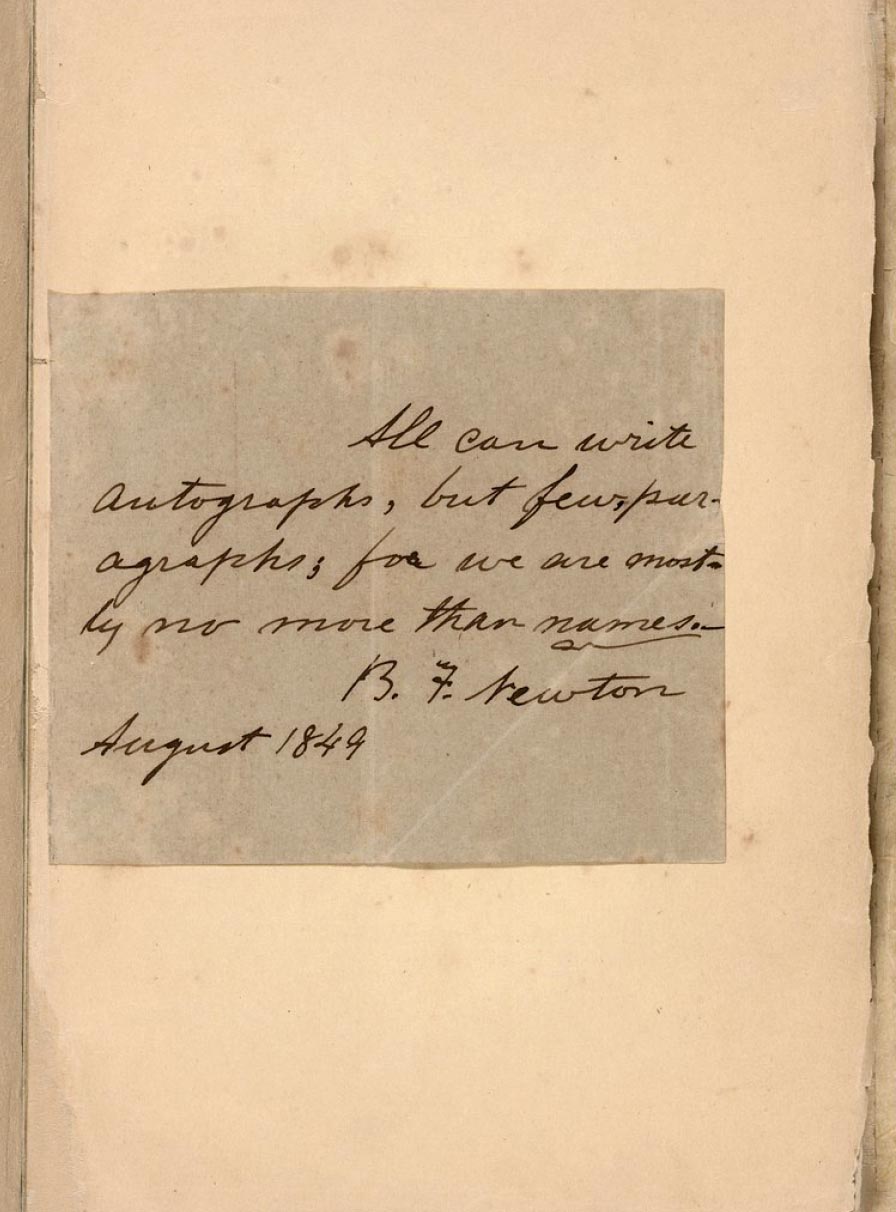 All can write
autographs, but few, par-
agraphs; for we are most-
ly no more than names.—
B. F. Newton
August 1849